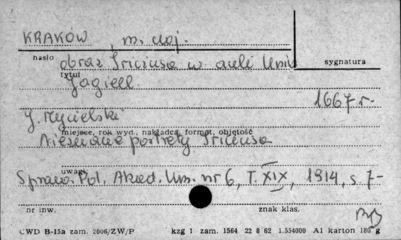 KRAKÓW, m. woj.
hasło obraz Triciusa w auli Uniw. sygnatura
tytuł Jagiell.
1667 r.
J. Mycielski
miejsce, rok wyd., nakładca, format, objętość
Nieznane portrety Triciusa
uwagi
Sprawo. Pol. Akad. Um. nr 6, T. XIX, 1914, s. 7-
nr inw. znak klas.
CWD B-15a zam. 2006/ZW/P kzg 1 zam. 1564 22 8 62 1.554000 A1 karton 180 g